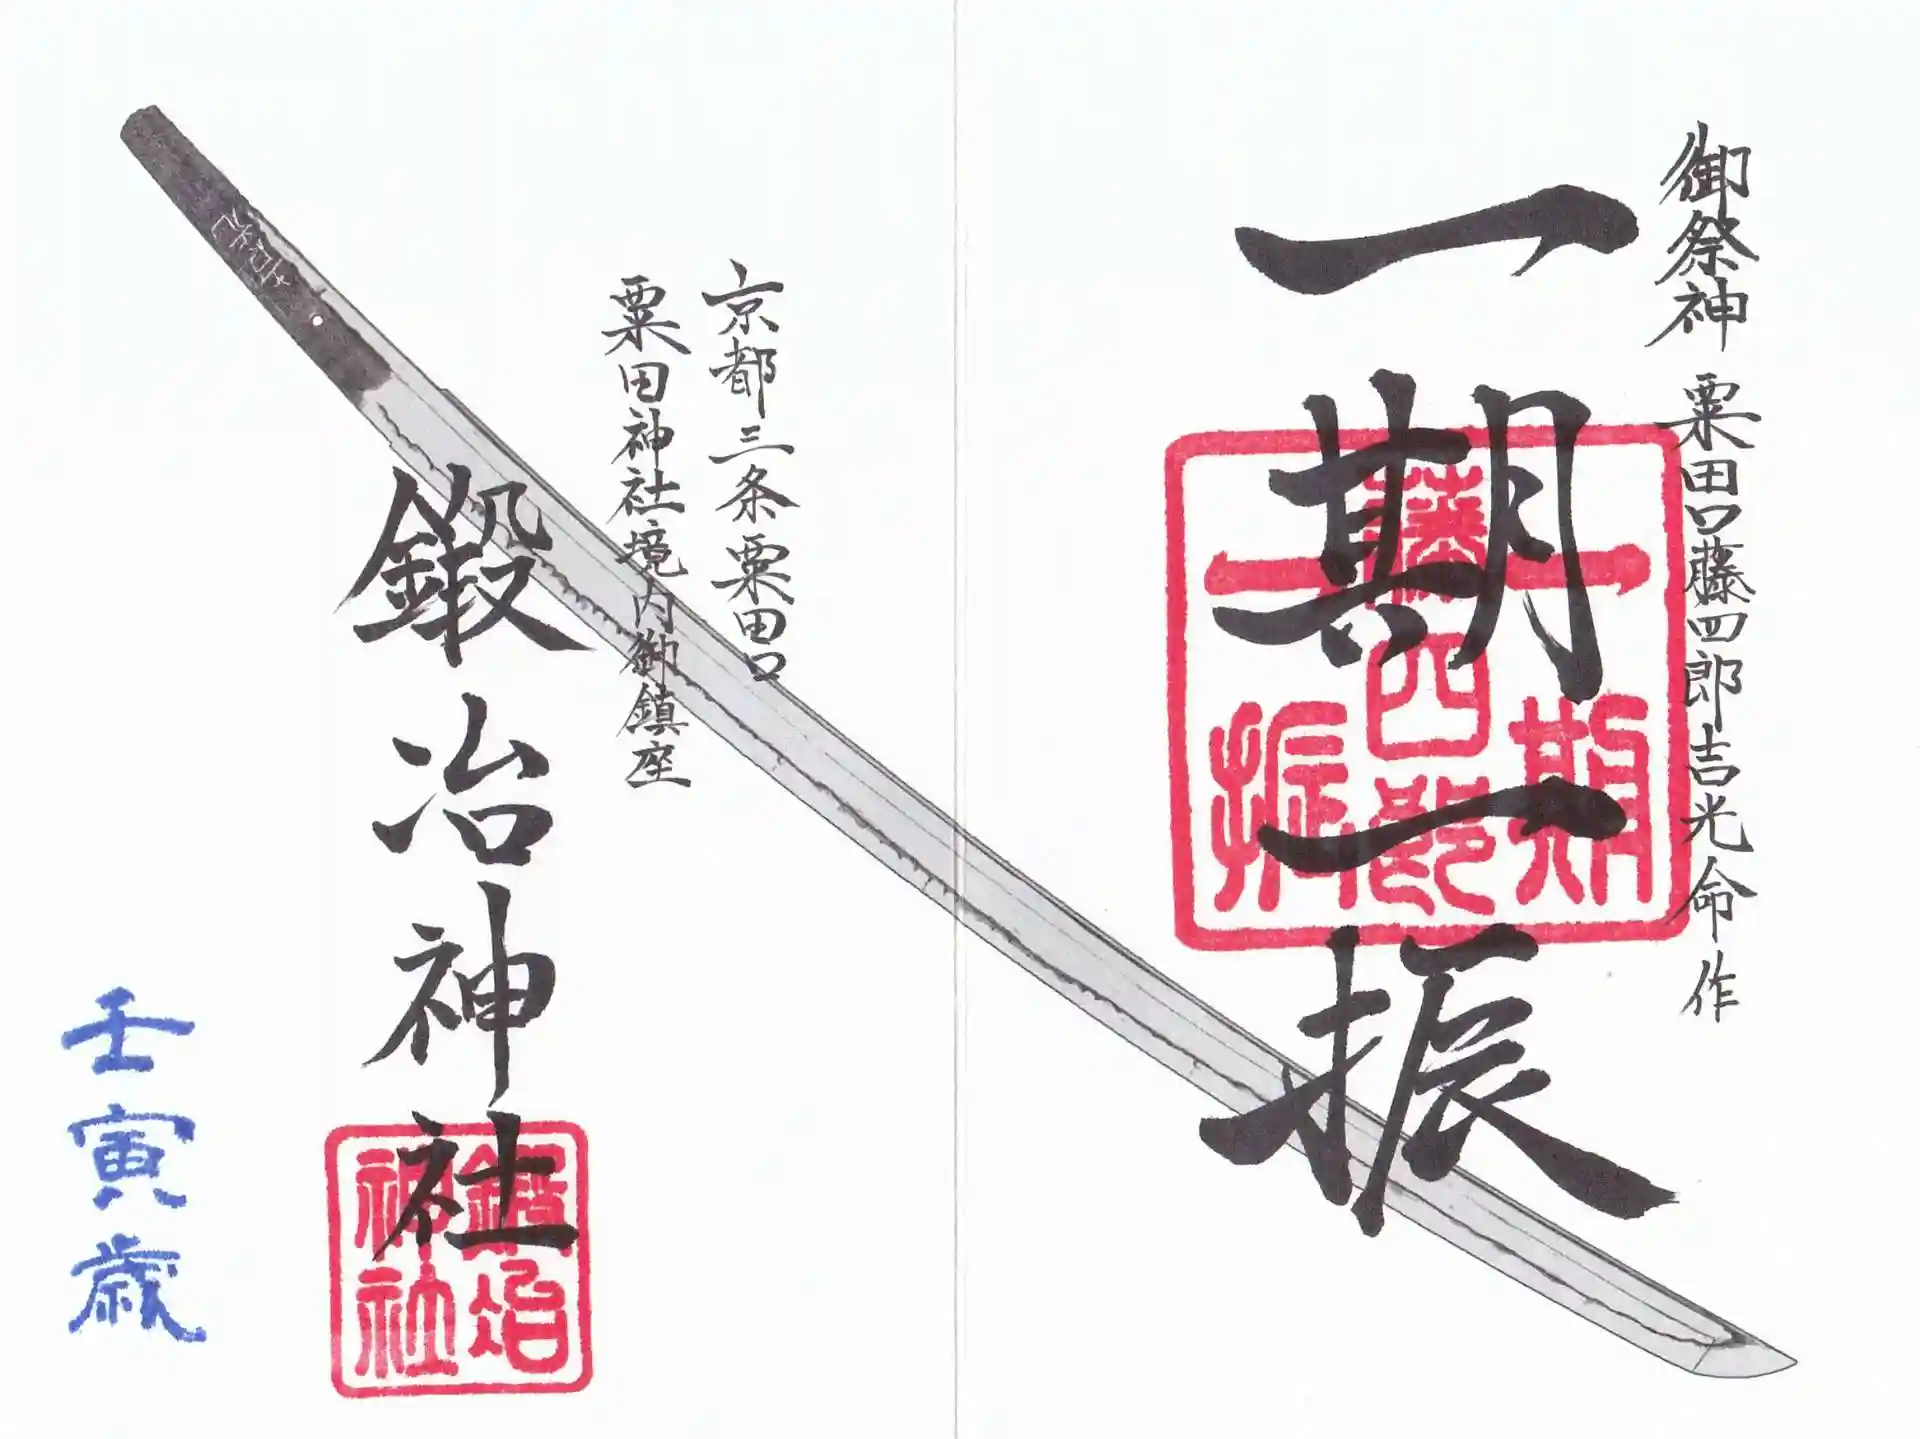 御祭神 粟田口藤四郎吉光命作
一期一振
藤四郎
一期
一振
京都三条粟田口
粟田神社境内御鎮座
鍛冶神社
鍛冶
神社
壬寅歳